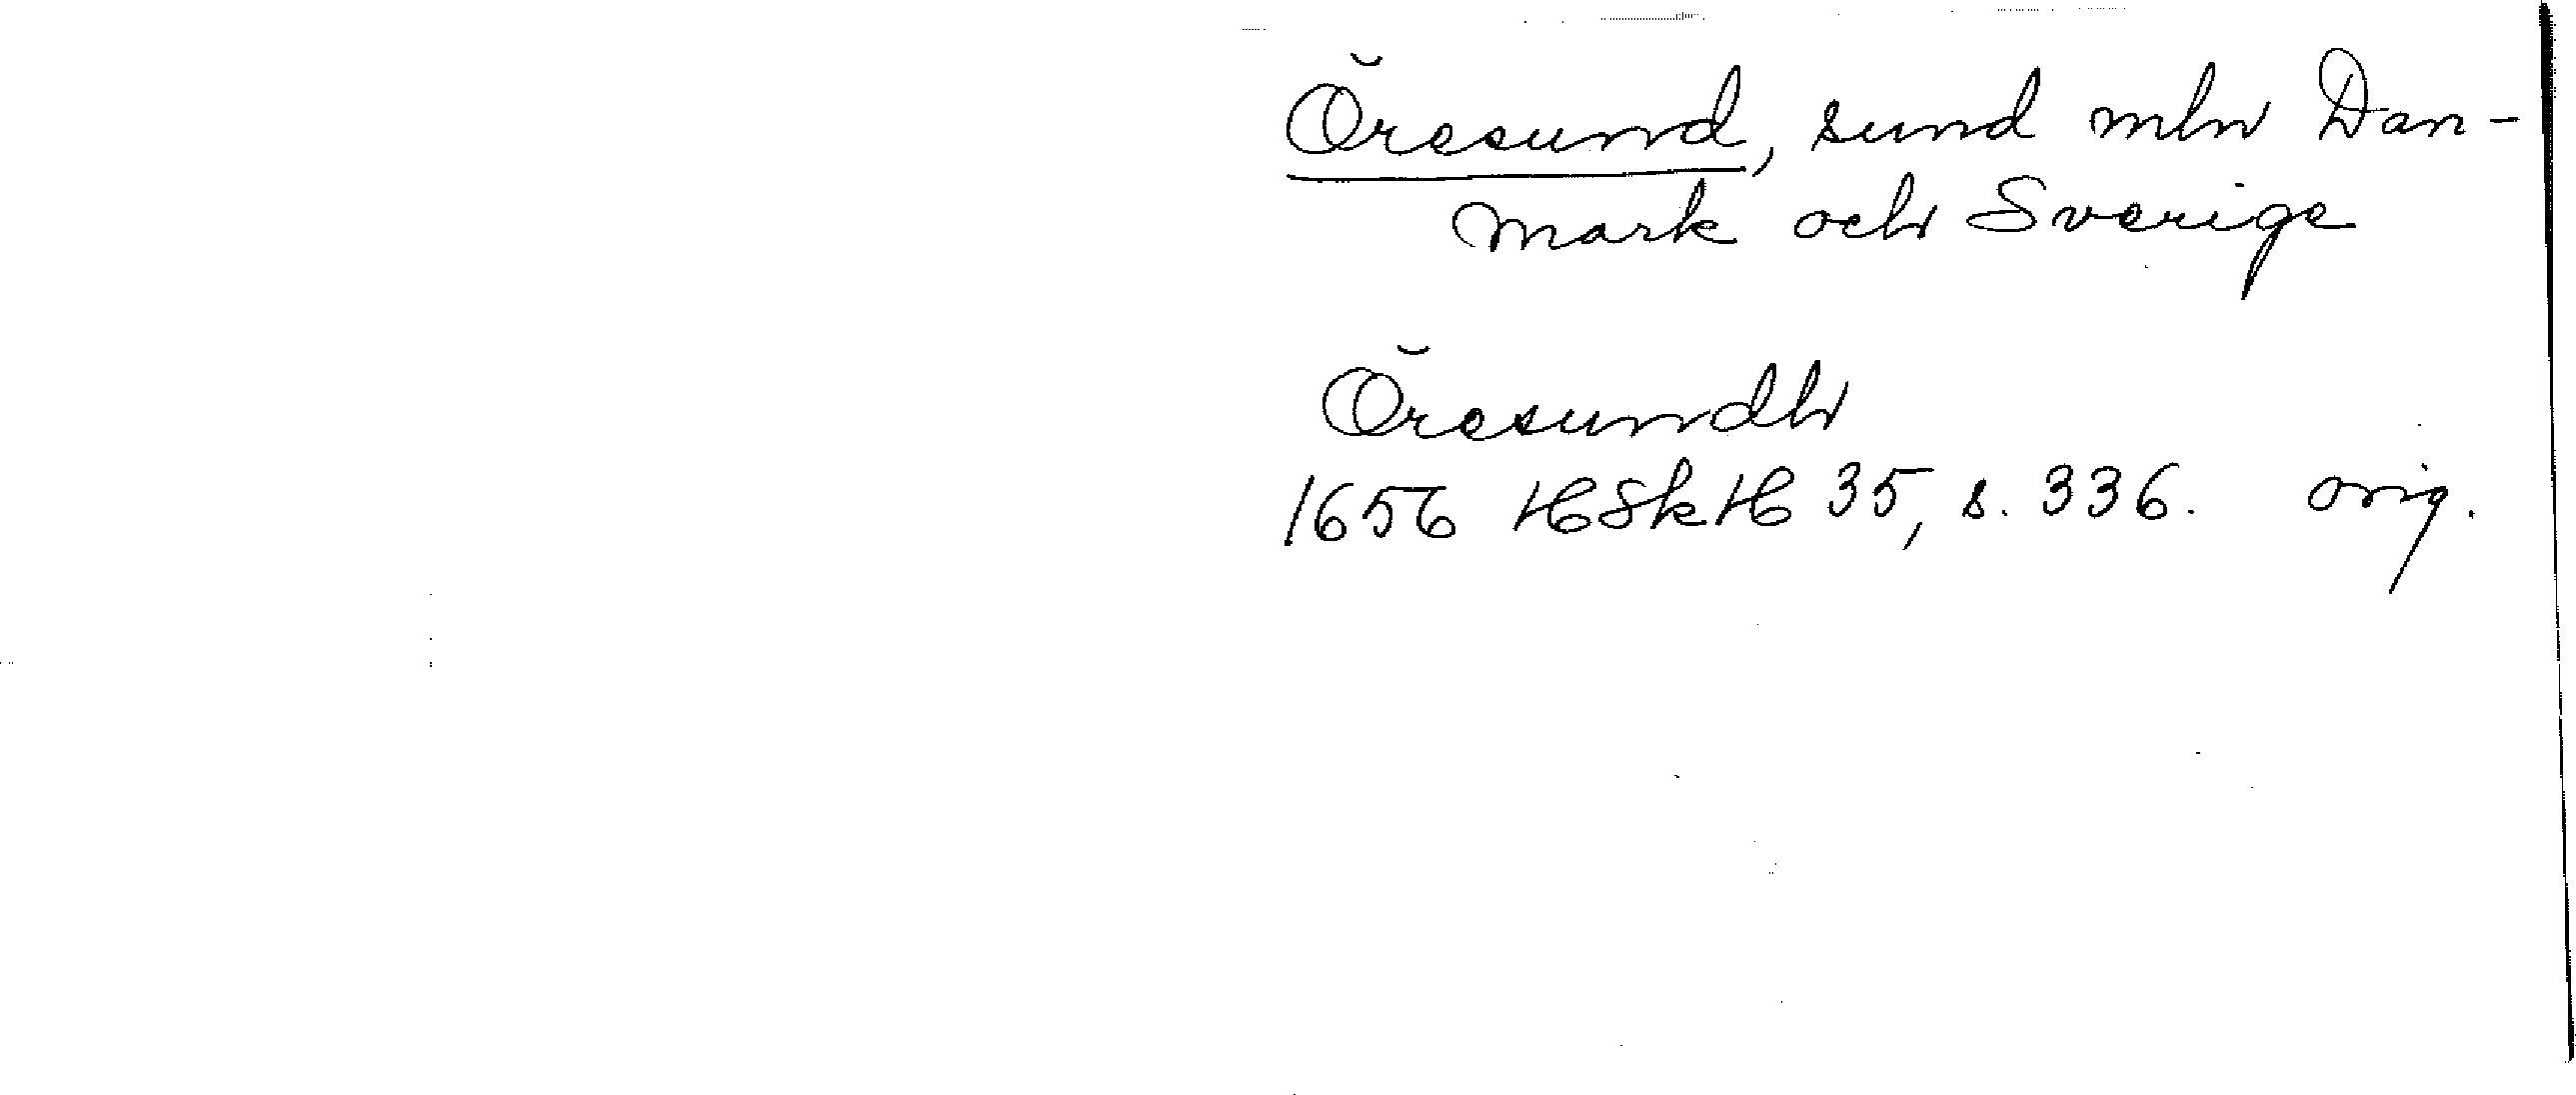 Öresund, sund mln Dan-
mark och Sverige
Öresundh
1656 HSkH 35, s. 336. orig.